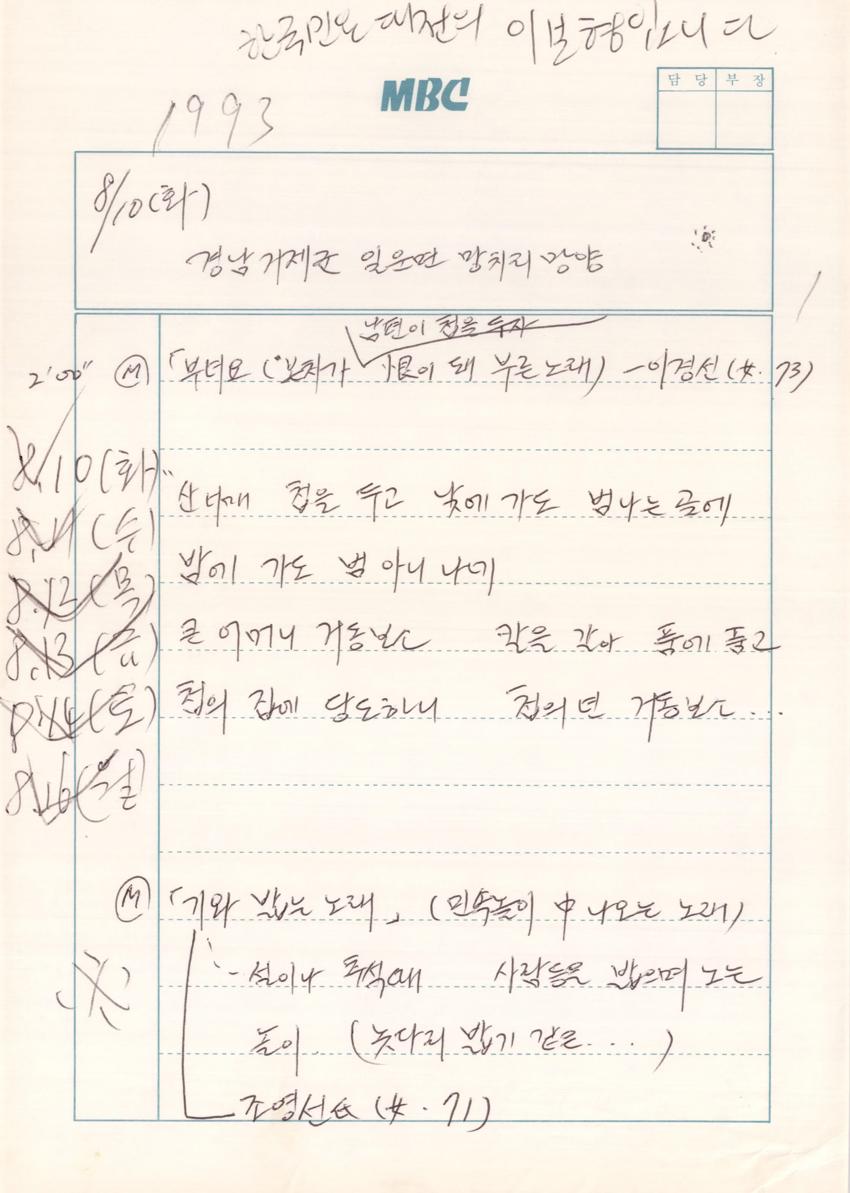 한국민요대전의 이보형입니다
MBC
담당 부장
1993
8/10(화)
경남거제군 일운면 망치리 망양
남편이 첩을 두자
2'00" Ⓜ 「부녀요 ( 恨이 돼 부른 노래) -이경선(女. 73)
8.10(화)
산 너매 첩을 두고 낮에 가도 범나는 골에
8.11(수)
밤에 가도 범 아니 나네
8.12(목)
큰 어머니 거동보소 칼을 갈아 품에 품고
8.13(금)
첩의 집에 당도하니 첩의 년 거동보소...
8.14(토)
8.16(월)
Ⓜ 「기와 밟는 노래」 (민속놀이 中 나오는 노래)
- 설이나 추석때 사람등을 밟으며 노는
놀이. (놋다리 밟기 같은....)
조영선氏 (女. 71)